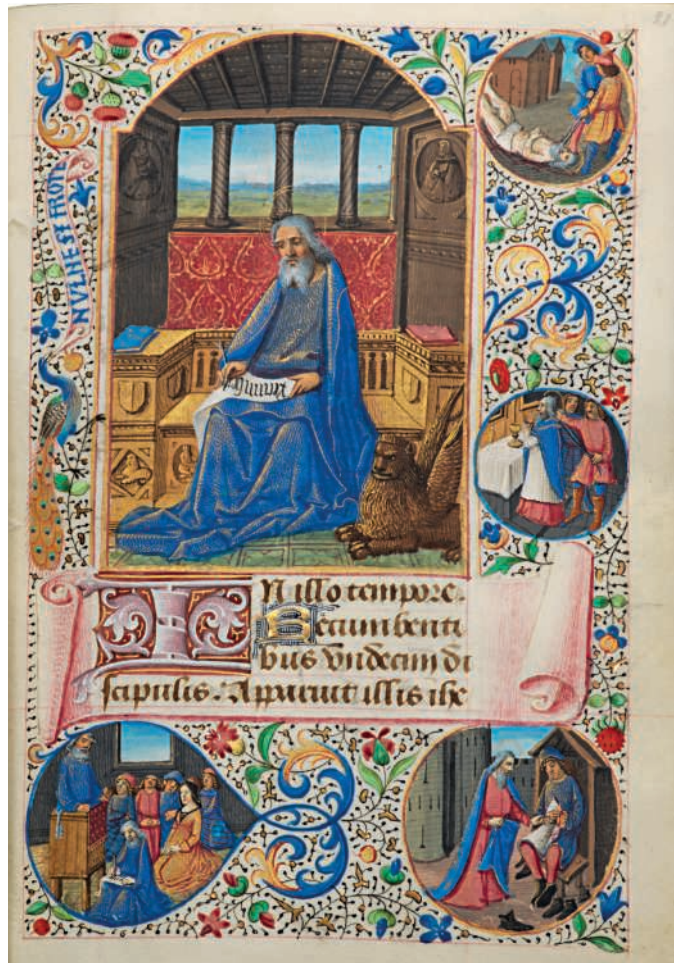 NVL NE SY FROTE
IN illo tempore.
Recumbenti
bus vndecim di
scipulis. Aparuit illis ihe